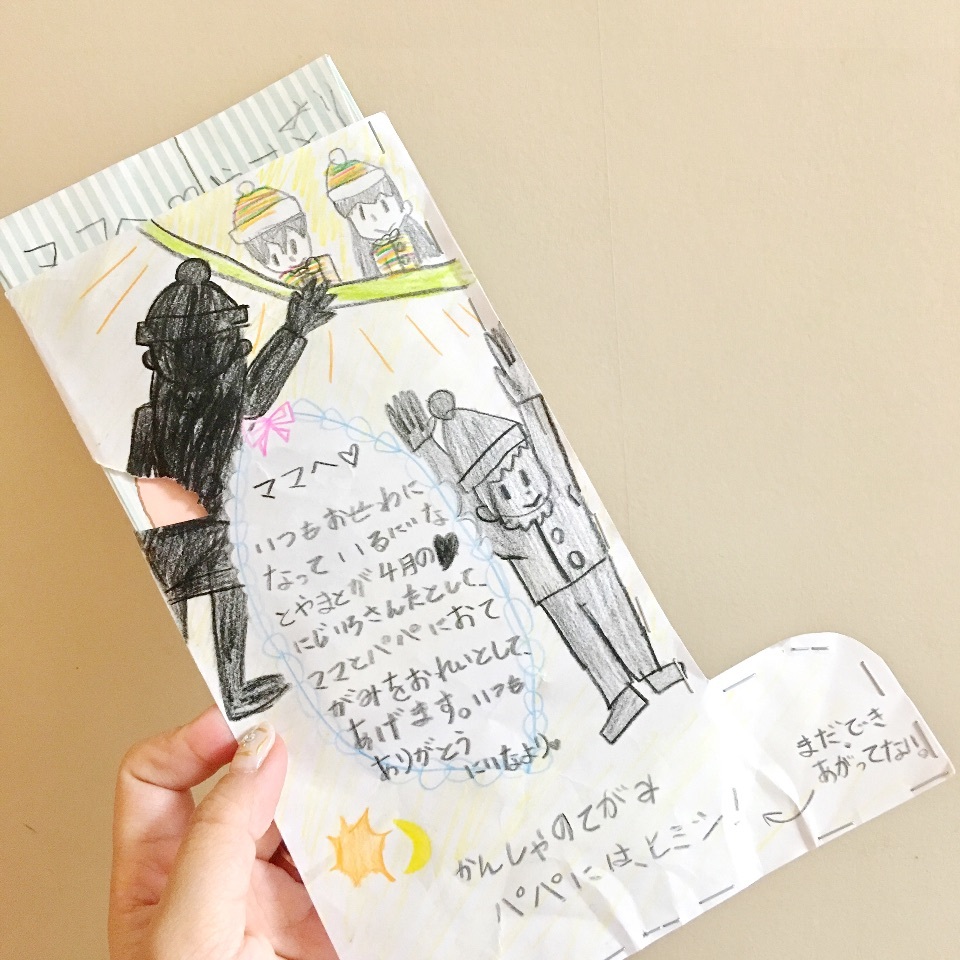 ママへ
より
ママへ♡
いつもおせわに
なっているにいな
とやまとが4月の♥
にじいろさんたとして、
ママとパパにおて
がみをおれいとして、
あげます。いつも
ありがとう
にいなより♥
かんしゃのてがみ
パパには、ヒミツ!
まだ、でき
あがってない。